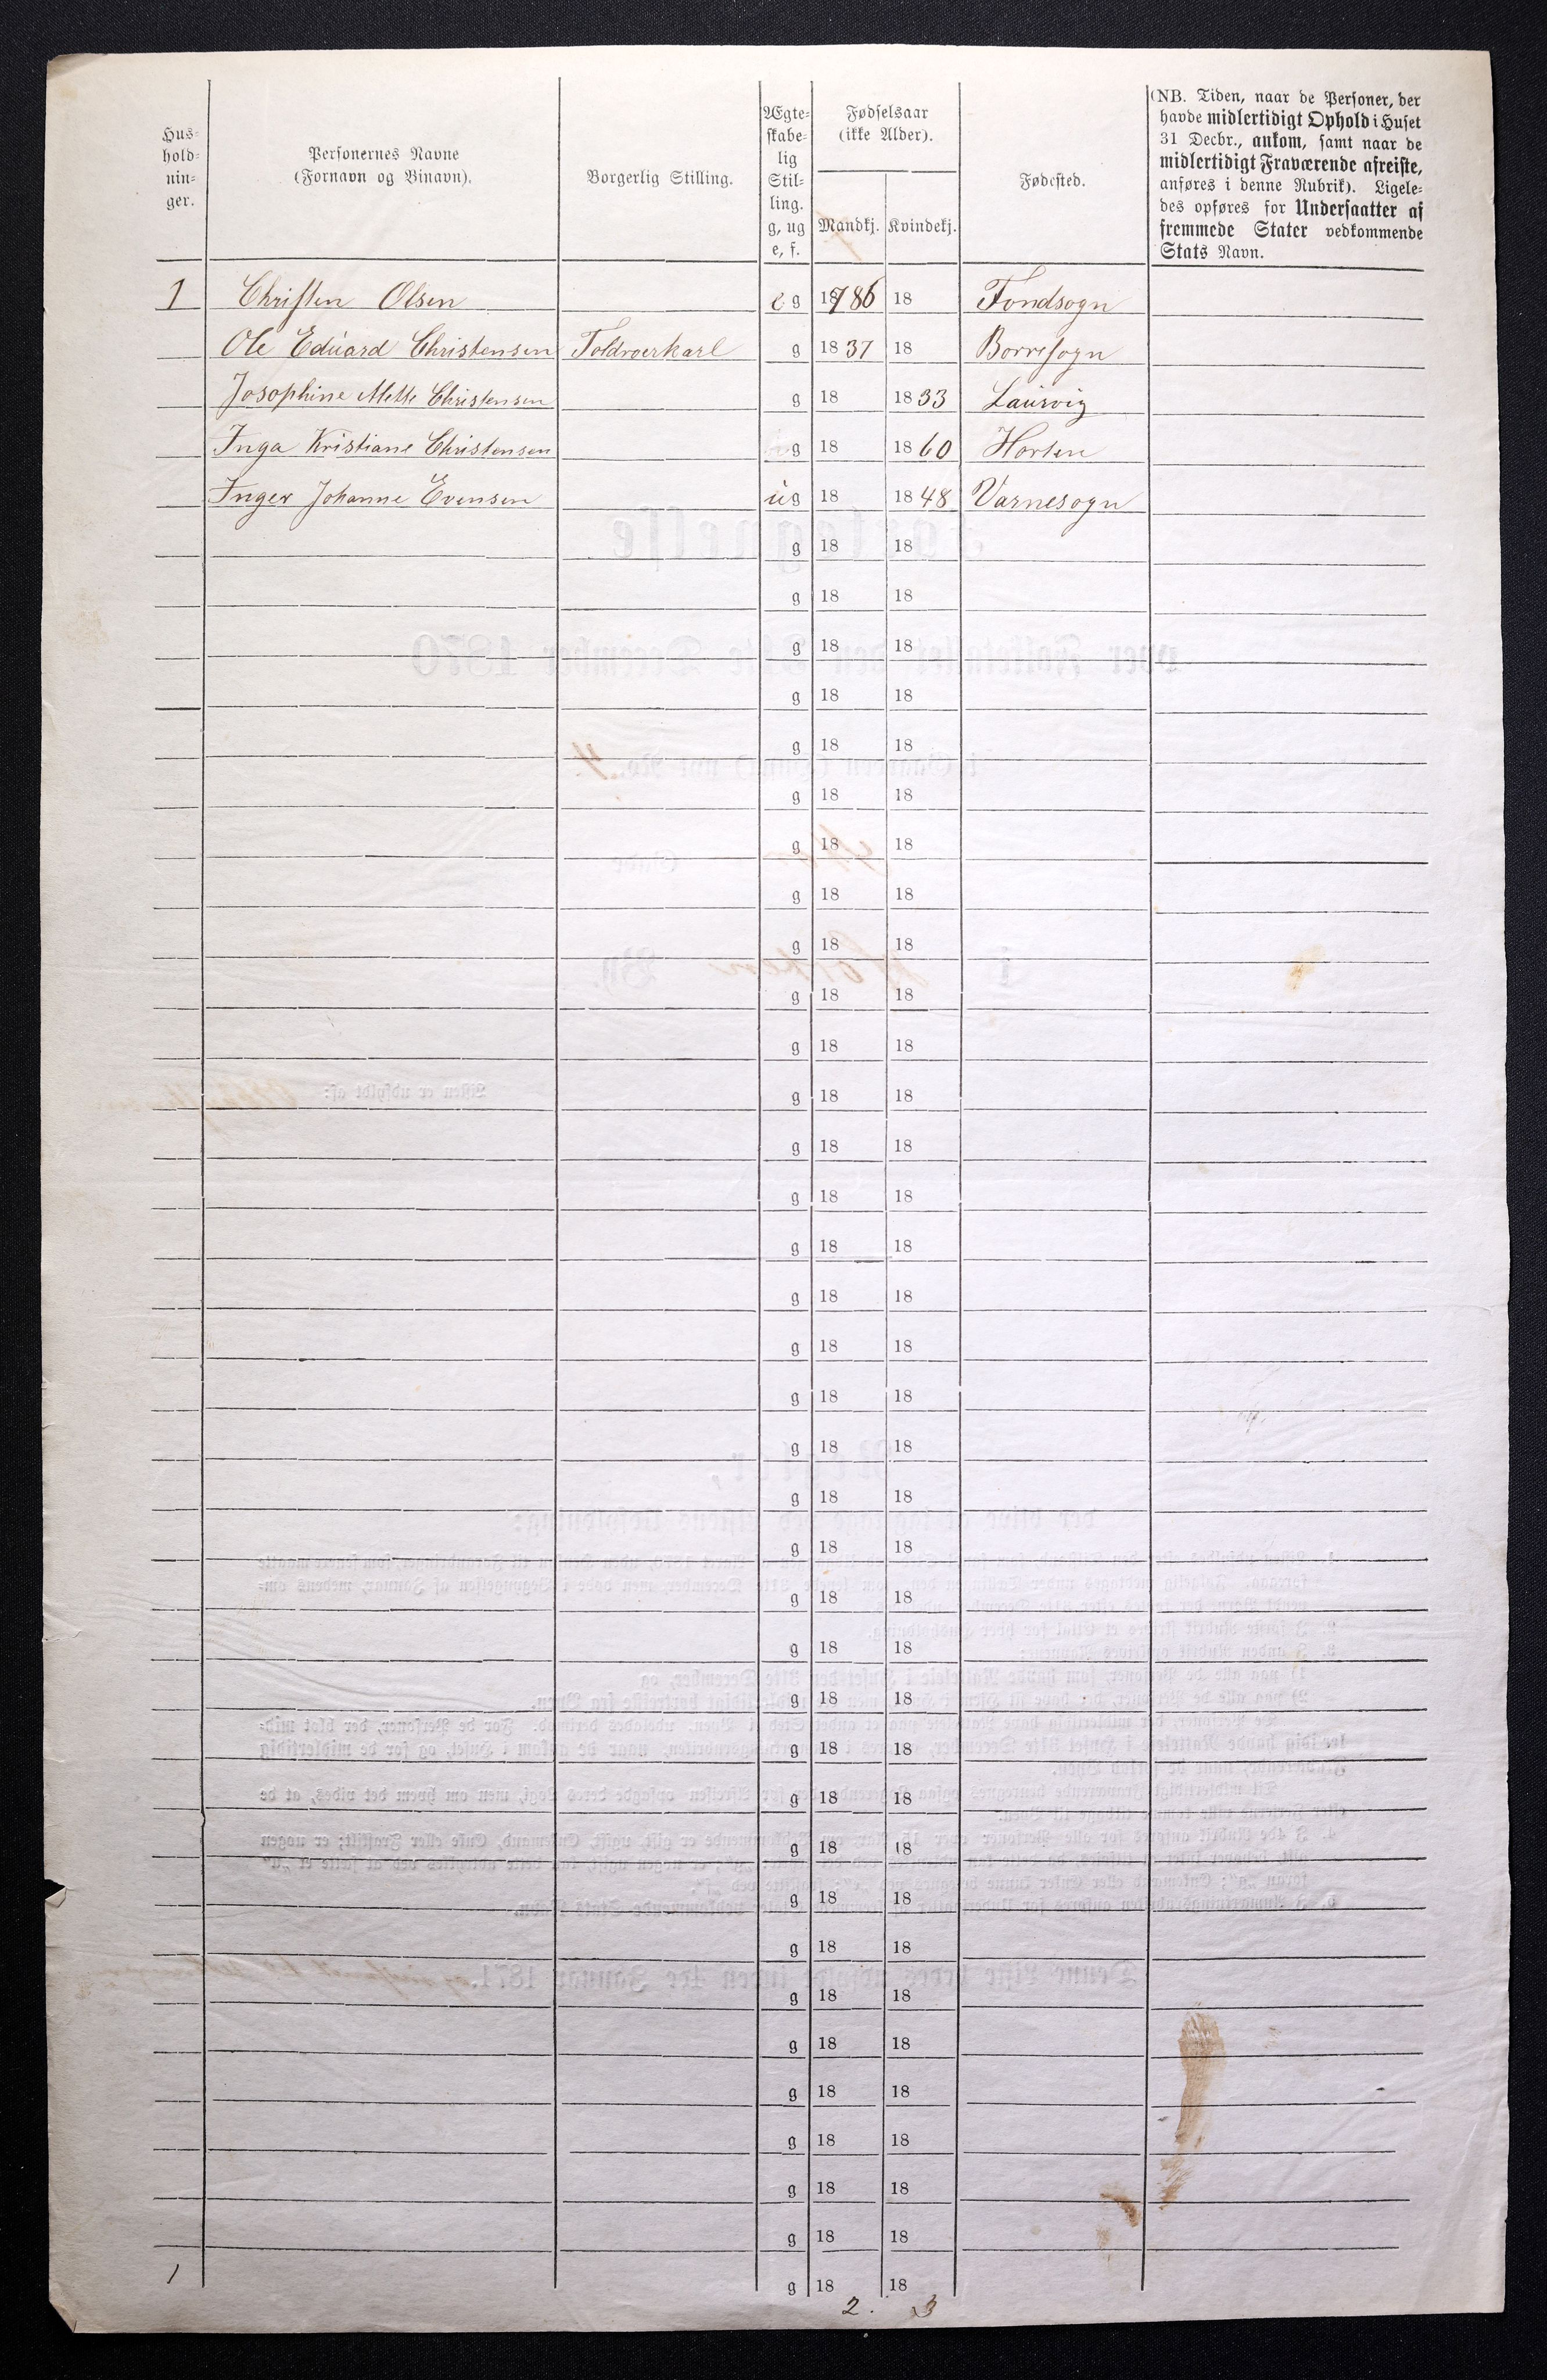 Hus-
hold-
nin-
ger.
Personernes Navne
(Fornavn og Binavn).
Borgerlig Stilling.
Ægte-
skabe-
lig
Stil-
ling.
g, ug
e, f.
Fødselsaar
(ikke Alder).
Mandkj. Kvindekj.
Fødested.
(NB. Tiden, naar de Personer, der
havde midlertidigt Ophold i Huset
31 Decbr., ankom, samt naar de
midlertidigt Fraværende afreiste,
anføres i denne Rubrik). Ligele-
des opføres for Undersaatter af
fremmede Stater vedkommende
Stats Navn.
1 Christen Olsen e g 1786 18 Fondsogn
Ole Eduard Christensen Toldroerkarl g 1837 18 Borresogn
Josephine Mette Christensen g 18 1833 Laurvig
Inga Kristiane Christensen g 18 1860 Horten
Inger Johanne Evensen ug 18 1848 Varnesogn
g 18 18
g 18 18
g 18 18
g 18 18
g 18 18
g 18 18
g 18 18
g 18 18
g 18 18
g 18 18
g 18 18
g 18 18
g 18 18
g 18 18
g 18 18
g 18 18
g 18 18
g 18 18
g 18 18
g 18 18
g 18 18
g 18 18
g 18 18
g 18 18
g 18 18
g 18 18
g 18 18
g 18 18
g 18 18
g 18 18
g 18 18
g 18 18
g 18 18
g 18 18
g 18 18
g 18 18
1 2. 3